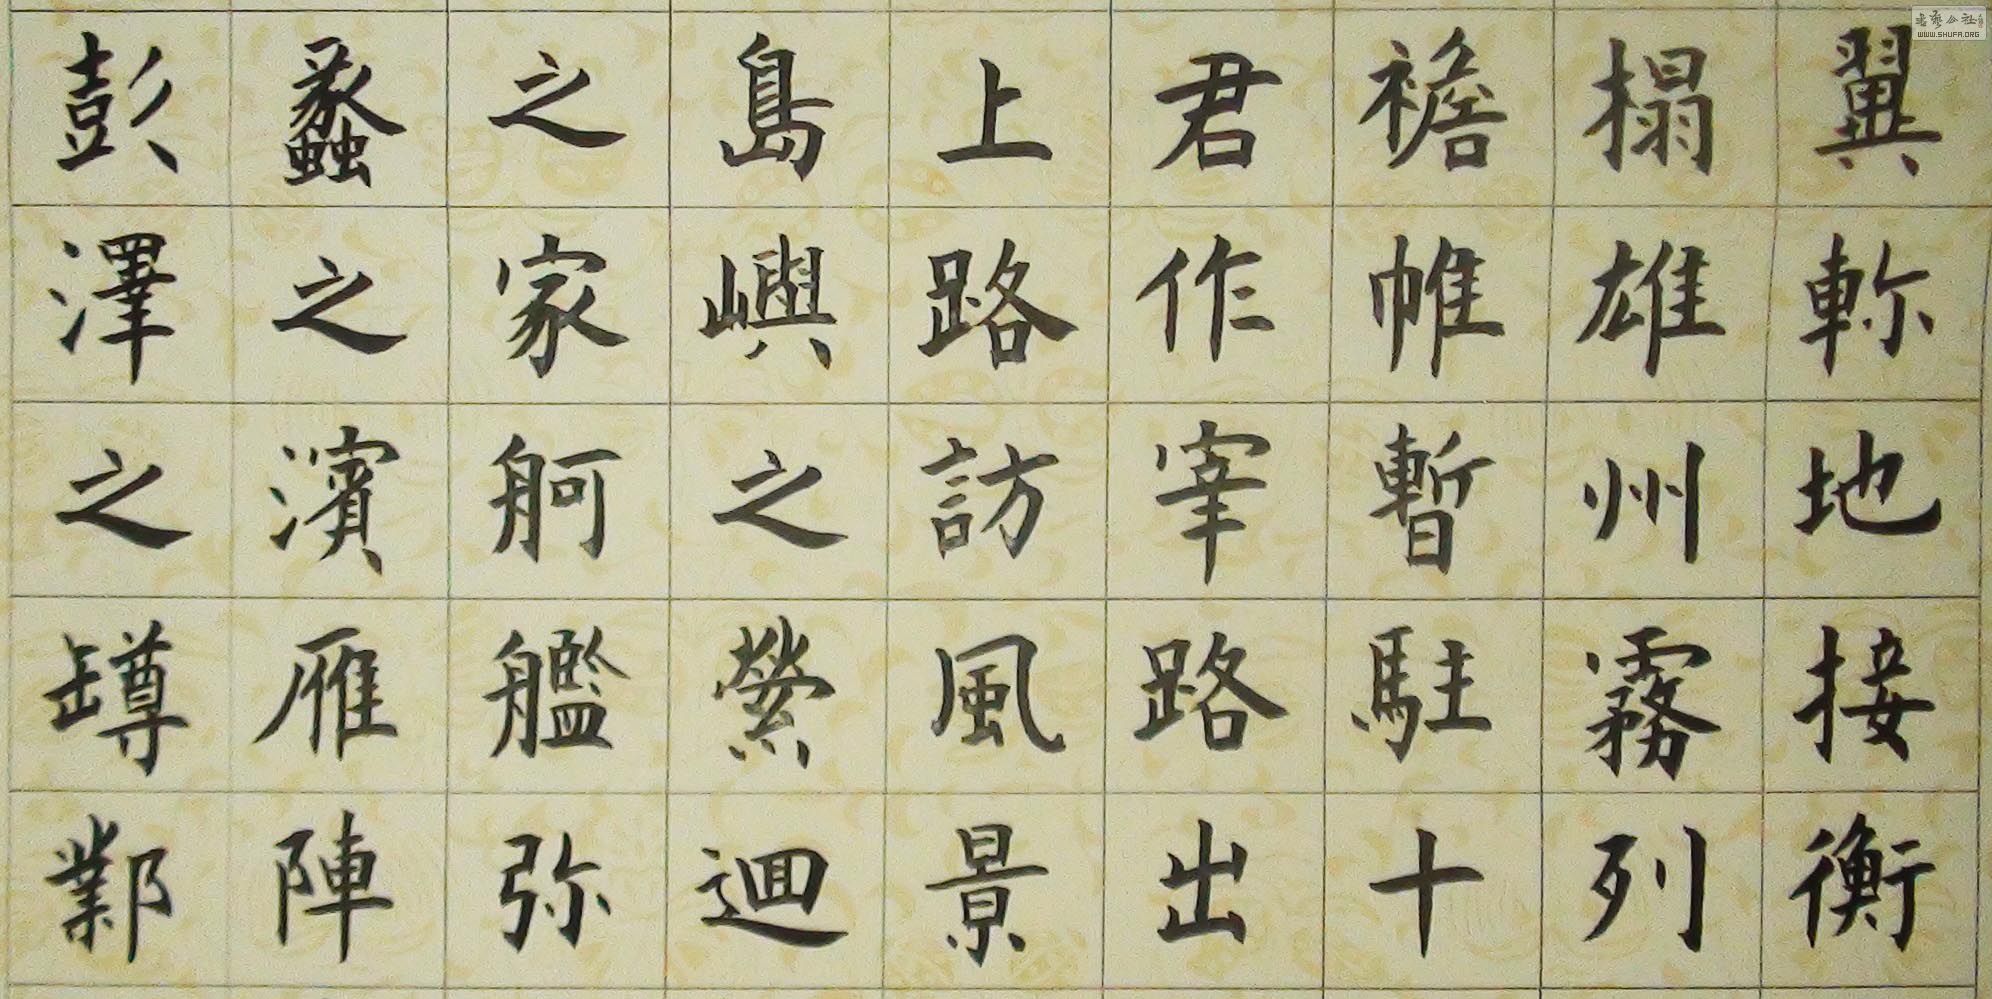 翼軫地接衡
榻雄州霧列
襜帷暫駐十
君作宰路出
上路訪風景
島嶼之縈迴
之家舸艦弥
蠡之濱雁陣
彭澤之罇鄴
WWW.SHUFA.ORG